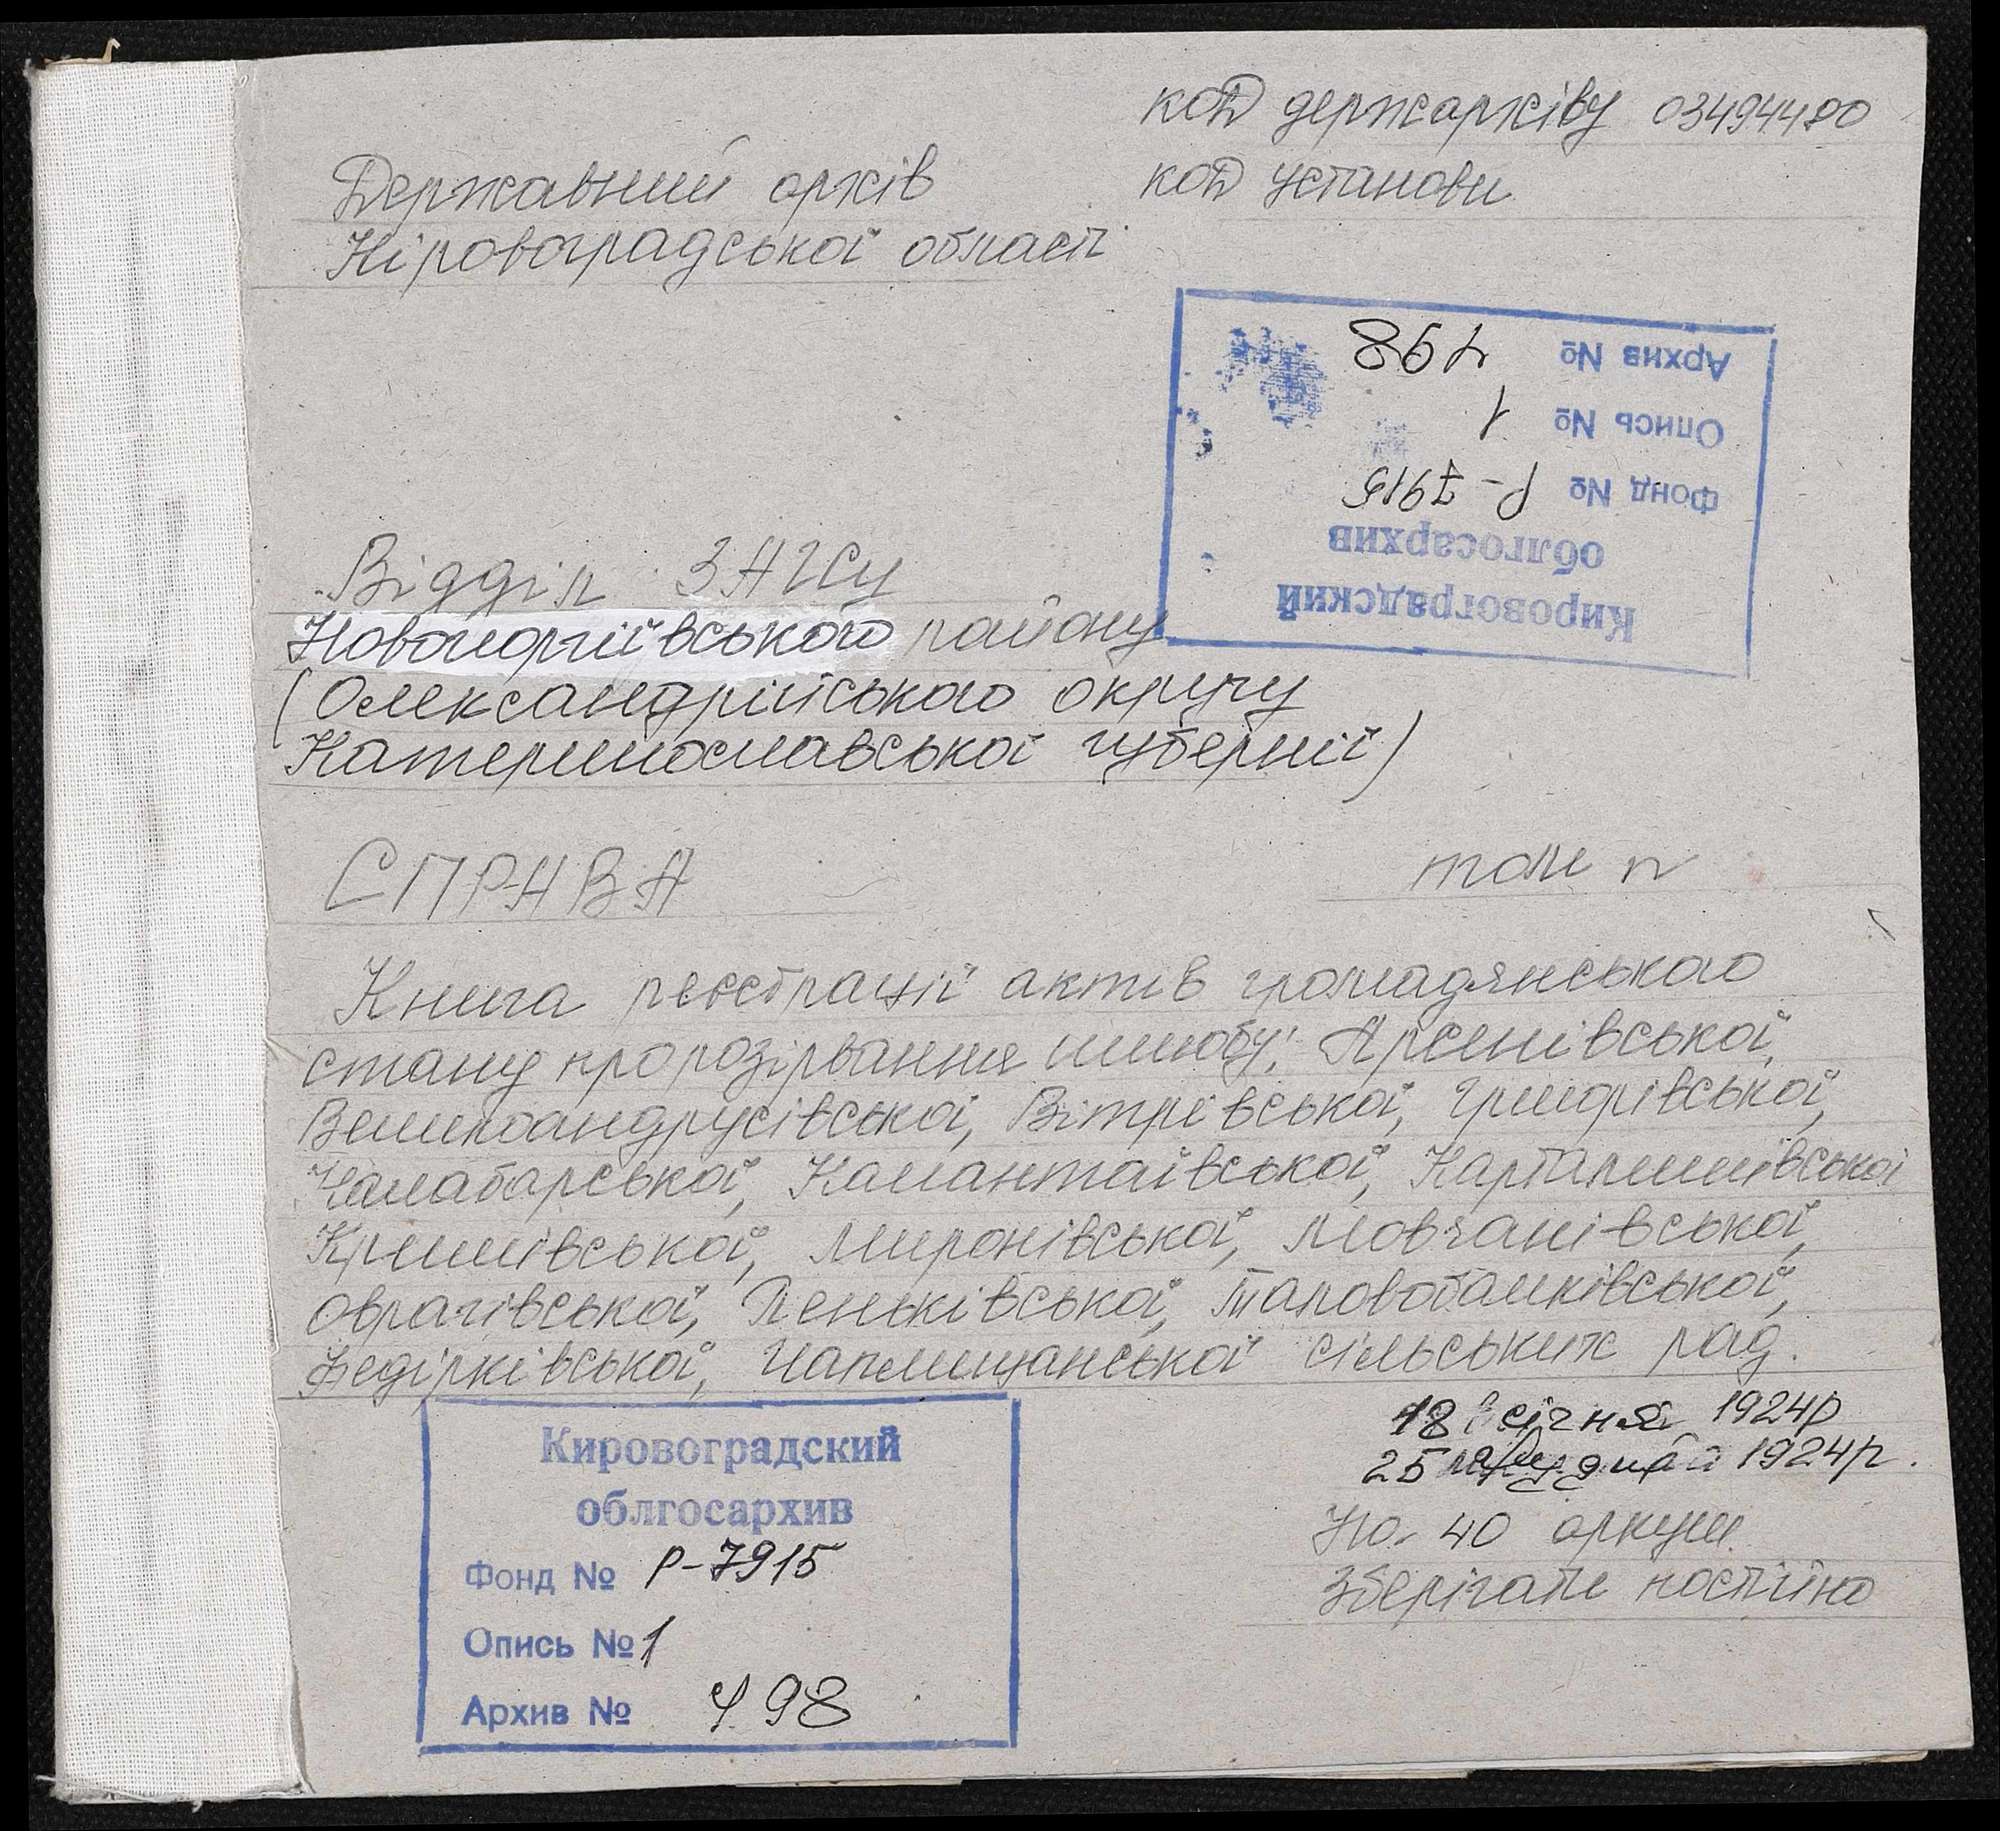 код держархіву 03494480
Державний архів
код установи
Кіровоградської області
Архив № 498
Опись № 1
Фонд № Р-7915
облгосархив
Кировоградский
Відділ ЗАГСу
Новогеоргіївського району
(Олександрійського округу
Катеринославської губернії)
СПРАВА
том n
Книга реєстрації актів громадянського
стану про розірвання шлюбу: Арсенівської,
Великоандрусівської, Вітрівської, Григорівської,
Калабарської, Калантаївської, Карталишівської
Кришівської, Миронівської, Мовчанівської,
Оврагівської, Пеньківської, Таловобалківської,
Федірківської, Чаплищанської сільських рад.
18 січня 1924р
25 1924р.
На 40 аркуш.
Зберігати постійно
Кировоградский
облгосархив
Фонд № Р-7915
Опись № 1
Архив № 498